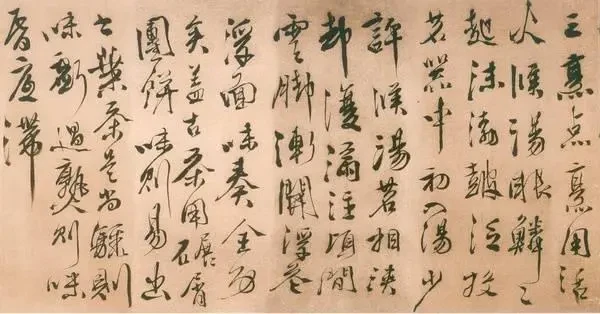 三烹点烹用活
火候湯眼鱗〻
起沫渤皷泛投
茗器中初入湯少
許候湯茗相浹
却復滿注頃間
雲脚漸開浮花
浮面味奏全功
矣盖古茶用碾屑
團餅味則易出
今葉茶是尚驟則
味虧過熟則味
昏底滯